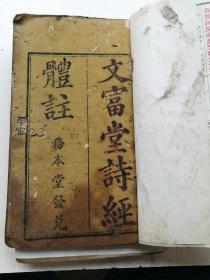 文富堂詩經
體註
務本堂發兌